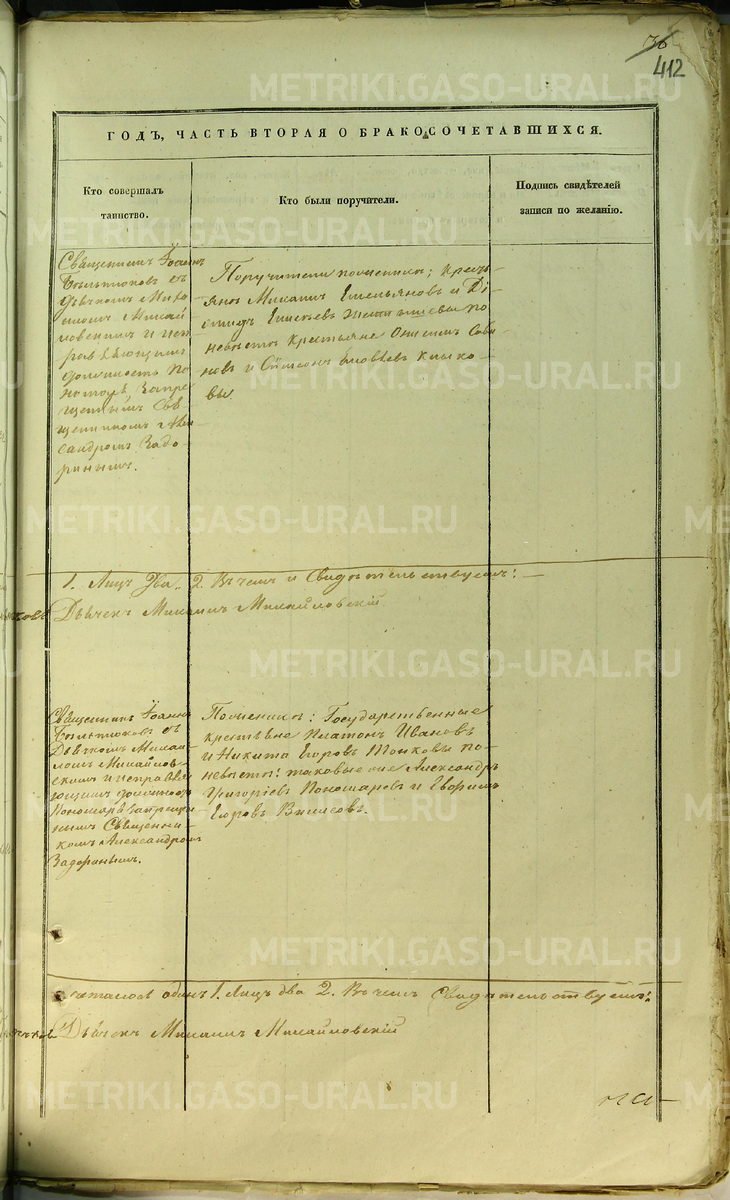 36
412
ГОДЪ, ЧАСТЬ ВТОРАЯ О БРАКОСОЧЕТАВШИХСЯ.
Кто совершалъ
таинство.
Кто были поручители.
Подпись свидѣтелей
записи по желанію.
Священникъ Іоаннъ
съ
Дьячкомъ Миха
иломъ Михай
ловскимъ и испр
авляющимъ
должность По
номаря, Запре
щеннымъ Свя
щенникомъ Але
ксандромъ Задо
ринымъ.
Поручители по женихѣ; Кресть
яне Михаилъ Емельяновъ и
по
невѣстѣ Крестьяне Онисимъ Сави
новъ и Симеонъ
вы
1. Лицъ Два. 2. Въ чемъ и Свидѣтельствуемъ:
Дьячекъ Михаилъ Михайловскій
Священникъ Іоаннъ
съ
Дьячкомъ Михаи
ломъ Михайлов
скимъ и исправля
ющимъ должность
Пономаря запрещен
нымъ Священни
комъ Александромъ
Задоринымъ.
По женихѣ: Государственные
крестьяне Платонъ Ивановъ
и Никита Егоровъ Тонковы по
невѣстѣ: таковые же Александръ
Григорьевъ Пономаревъ и
Егоровъ
одинъ 1. Лицъ два 2. Въ чемъ Свидѣтельствуемъ:
Дьячекъ Михаилъ Михайловскій
METRIKI.GASO-URAL.RU